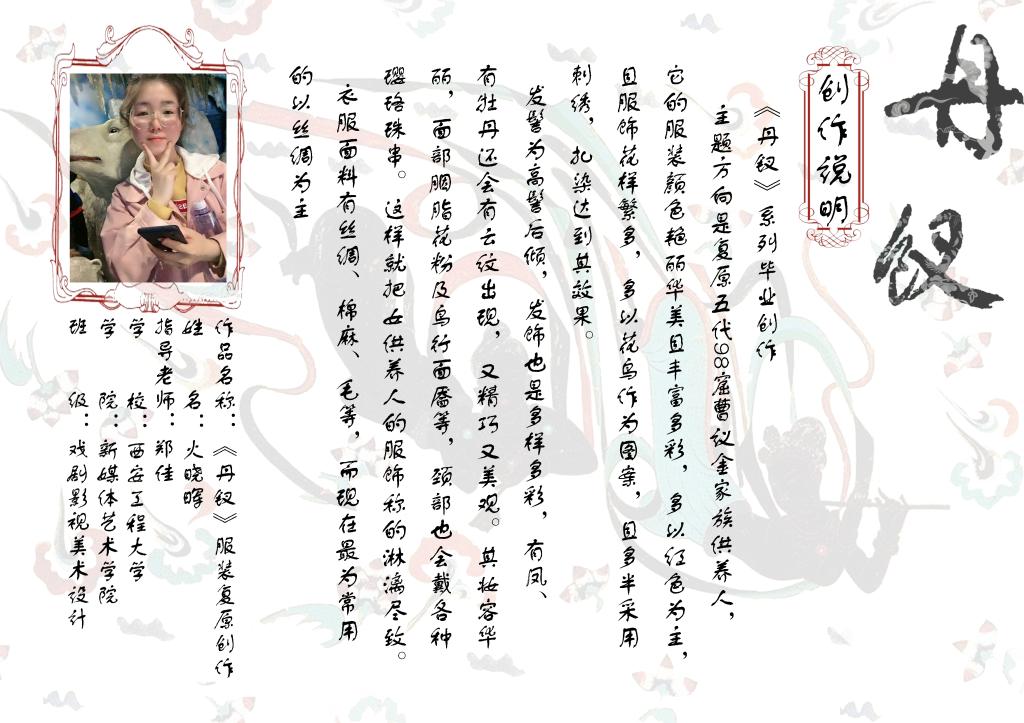 丹钗
创作说明
《丹钗》系列毕业创作
主题方向是复原五代98窟曹议金家族供养人，
它的服装颜色艳丽华美且丰富多彩，多以红色为主，
且服饰花样繁多，多以花鸟作为图案，且多半采用
刺绣，扎染达到其效果。
发髻为高髻后倾，发饰也是多样多彩，有凤、
有牡丹还会有云纹出现，又精巧又美观。其妆容华
丽，面部胭脂花粉及鸟行面靥等，颈部也会戴各种
璎珞珠串。这样就把女供养人的服饰称的淋漓尽致。
衣服面料有丝绸、棉麻、毛等，而现在最为常用
的以丝绸为主
作品名称：《丹钗》服装复原创作
姓名：火晓晖
指导老师：郑佳
学校：西安工程大学
学院：新媒体艺术学院
班级：戏剧影视美术设计